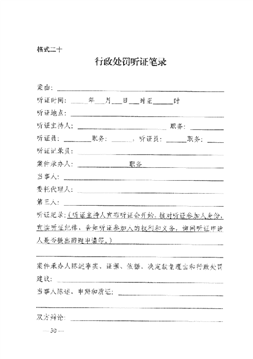 格式二十
行政处罚听证笔录
案由:
听证时间: 年 月 日 时至 时
听证地点:
听证主持人: 职务:
听证员: 职务: 、听证员: 职务:
听证记录员:
案件承办人: 职务
当事人:
委托代理人:
第三人:
听证记录:(听证主持人宣布听证会开始,核对听证参加人身份,
宣读听证纪律,告知听证参加人的权利和义务,询问听证申请
人是否提出回避申请等。)
案件承办人陈述事实、证据、依据、决定裁量理由和行政处罚
建议:
当事人陈述、申辩和质证:
双方辩论:
— 30 —